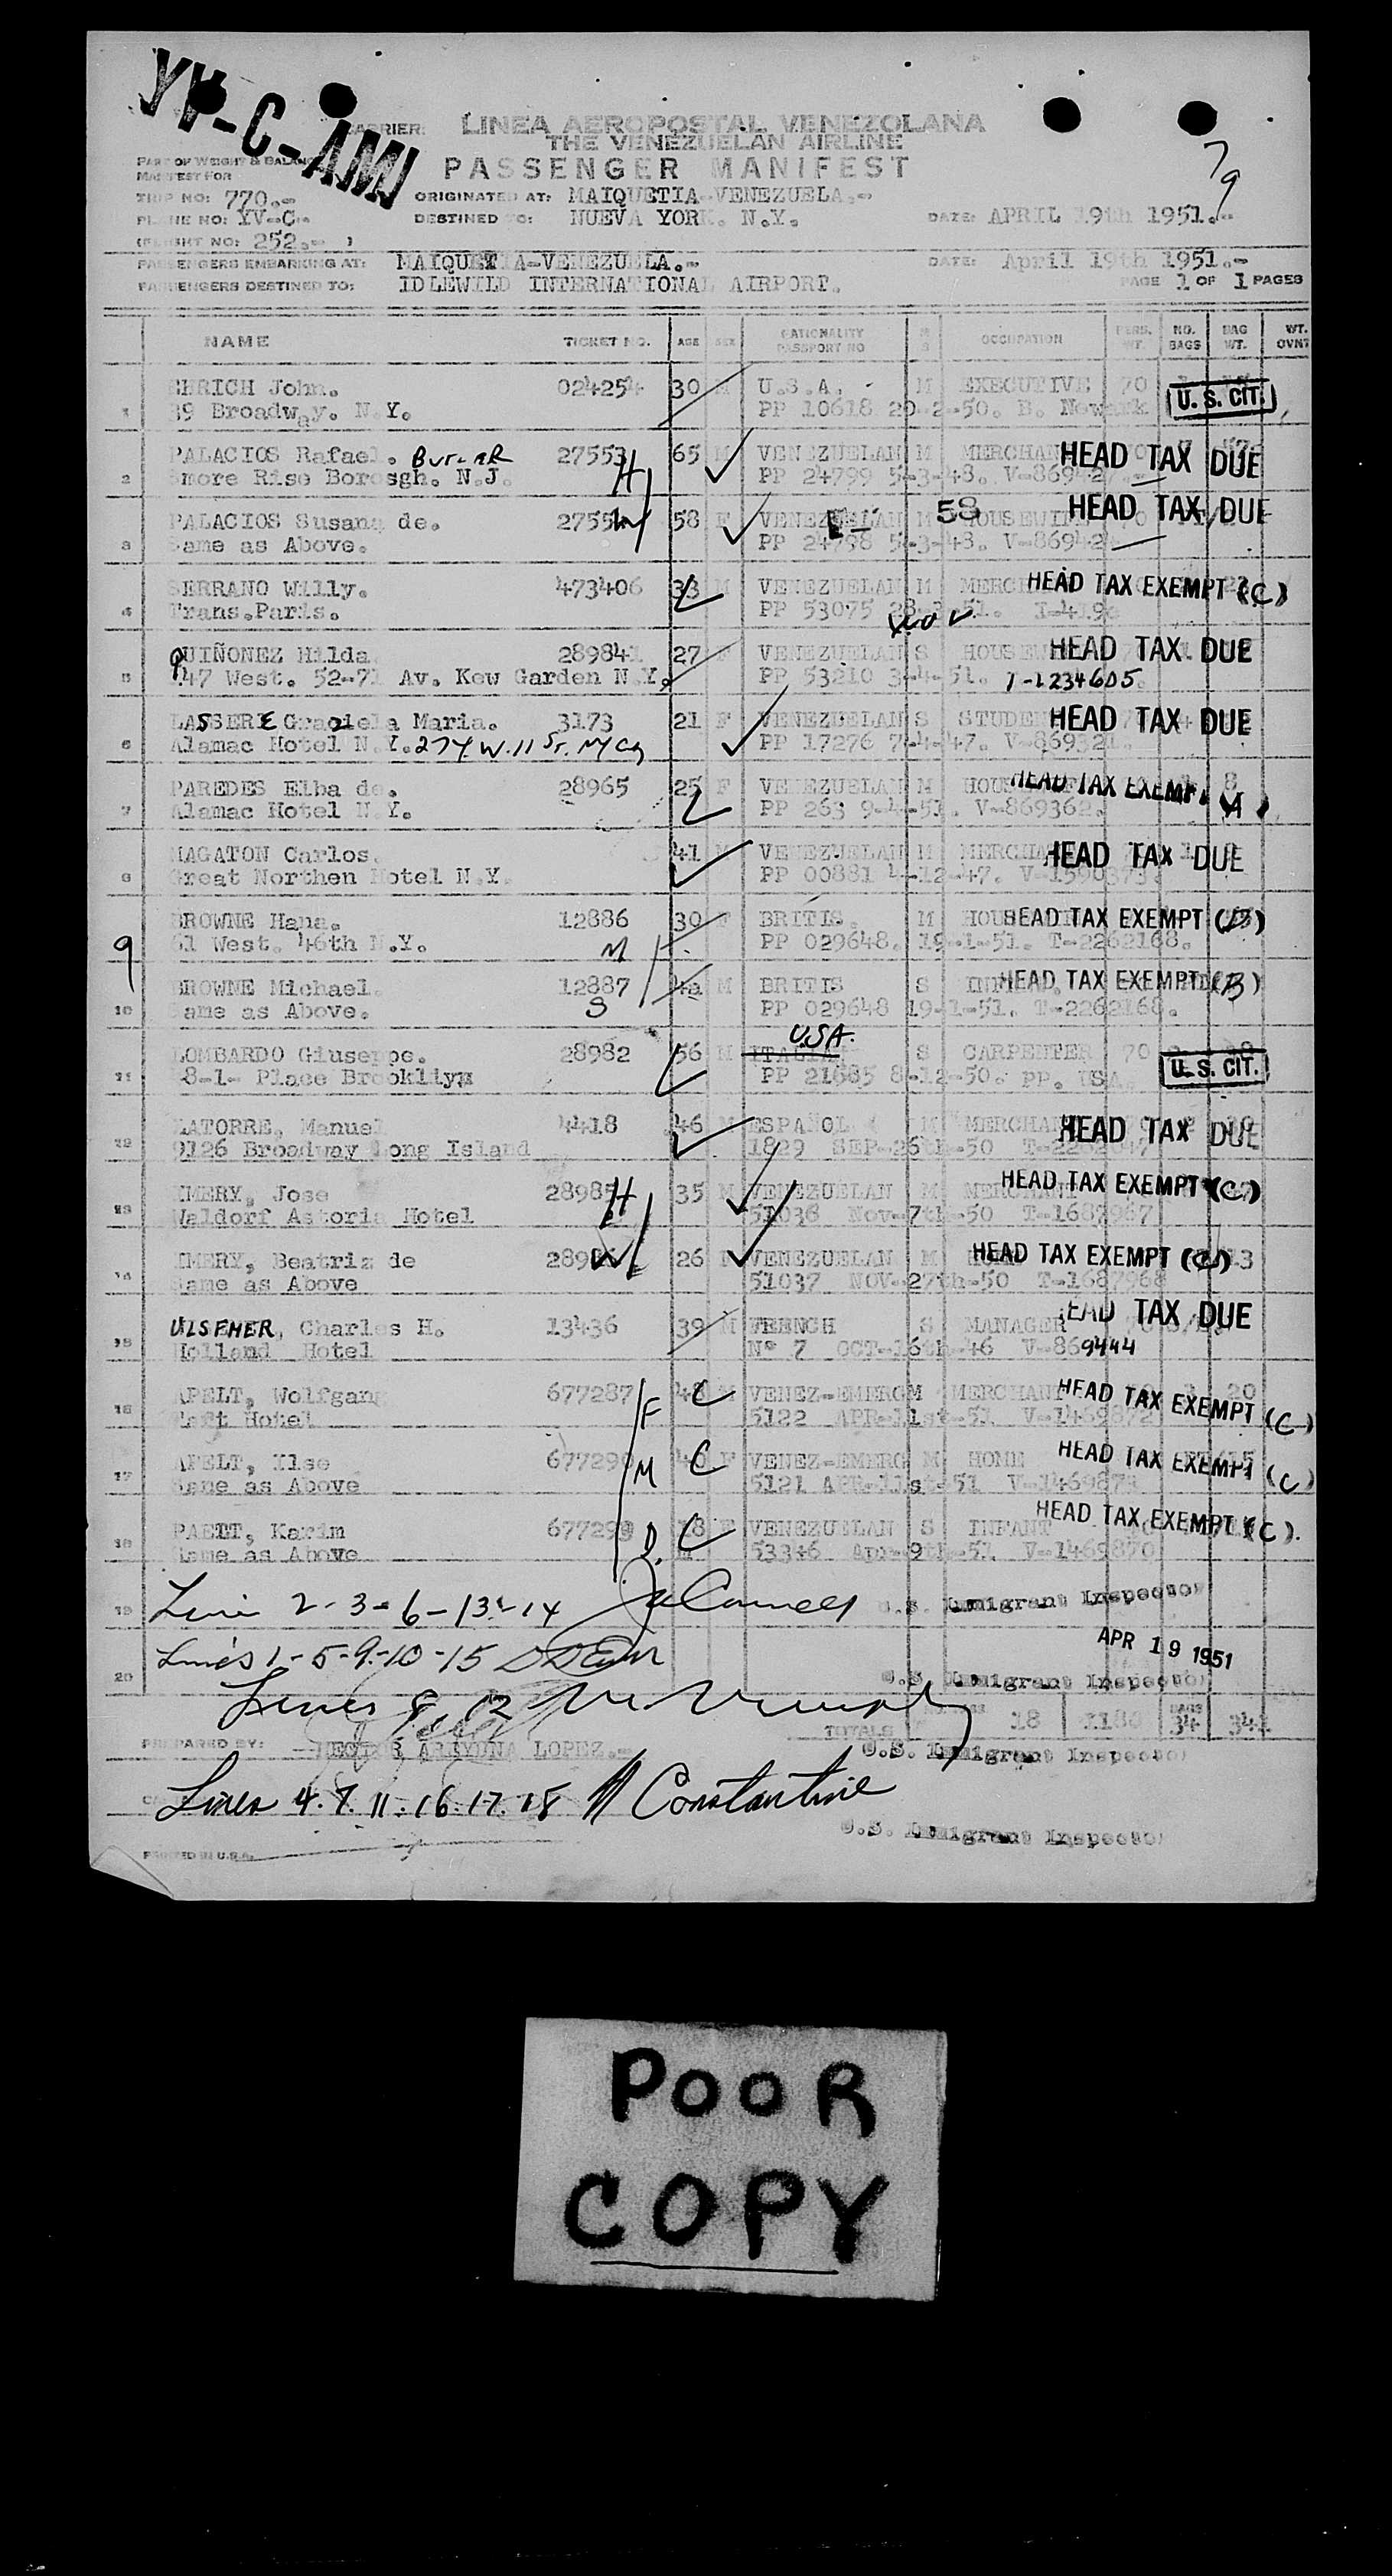 YV-C-AMI
CARRIER: LINEA AEROPOSTAL VENEZOLANA
THE VENEZUELAN AIRLINE
PASSENGER MANIFEST
79
PART OF WEIGHT & BALANCE
MANIFEST FOR
TRIP NO: 770.- ORIGINATED AT: MAIQUETIA-VENEZUELA.-
PLANE NO: YV-C- DESTINED TO: NUEVA YORK. N.Y. DATE: APRIL 19th 1951.-
(FLIGHT NO: 252.- )
PASSENGERS EMBARKING AT: MAIQUETIA-VENEZUELA.- DATE: April 19th 1951.-
PASSENGERS DESTINED TO: IDLEWILD INTERNATIONAL AIRPORT. PAGE 1 OF 1 PAGES
NAME TICKET NO. AGE SEX NATIONALITY PASSPORT NO M S OCCUPATION PERS. WT. NO. BAGS BAG WT. WT. OVNT
EHRICH John. 024254 30 M U.S.A. - M EXECUTIVE 70
1 39 Broadway. N.Y. PP 10618 20-2-50. B. Newark U. S. CIT.
PALACIOS Rafael. 27553 H 65 M VENEZUELAN M MERCHANT HEAD TAX DUE
2 Smore Rise Borosgh. N.J. PP 24799 5-3-48. V-869427.-
PALACIOS Susana de. 27554 W 58 F VENEZUELAN F M 58 HOUSEWIFE 70 HEAD TAX DUE
3 Same as Above. PP 24798 5-3-48. V-86942
SERRANO Willy. 473406 33 M VENEZUELAN M HEAD TAX EXEMPT (C)
4 Trans.Paris. PP 53075
QUIÑONEZ Hilda 289841 27 F VENEZUELAN S HEAD TAX DUE
5 147 West. 52-71 Av. Kew Garden N.Y. PP 53210 3-4-51. T-1234605.
LASSERE Graciela Maria. 3173 21 F VENEZUELAN S STUDENT HEAD TAX DUE
6 Alamac Hotel N.Y. 274 W. 11 St. NYC PP 17276 7-4-47. V-869321.
PAREDES Elba de. 28965 25 F VENEZUELAN M HEAD TAX EXEMPT
7 Alamac Hotel N.Y. PP 263 9-4-51. V-869362.
MAGATON Carlos. 41 M VENEZUELAN M MERCHANT HEAD TAX DUE
8 Great Northen Hotel N.Y. PP 00881 4-12-47.
BROWNE Hana. 12886 30 F BRITIS. M HEAD TAX EXEMPT (B)
9 61 West. 46th N.Y. M PP 029648. 19-1-51. T-2262168.
BROWNE Michael. 12887 M BRITIS S HEAD TAX EXEMPT (B)
10 Same as Above. S PP 029648 19-1-51. T-2262168.
U.S.A.
LOMBARDO Giuseppe. 28982 56 M ITALIAN S CARPENTER 70
11 8-1- Place Brookliyn PP 21685 8-12-50. PP. USA. U. S. CIT.
LATORRE, Manuel 4418 46 M ESPAÑOL M MERCHANT HEAD TAX DUE
12 9126 Broadway Long Island 1829 SEP-26th-50
IMERY, Jose 28985 H 35 M VENEZUELAN M MERCHANT HEAD TAX EXEMPT (C)
13 Waldorf Astoria Hotel 51036 Nov-7th-50 T-1687967
IMERY, Beatriz de 28986 W 26 F VENEZUELAN M HEAD TAX EXEMPT (C) 13
14 Same as Above 51037 NOV-27th-50 T-1687968
ULSEHER, Charles H. 13436 39 M FRENCH S MANAGER HEAD TAX DUE
15 Holland Hotel Nº 7 OCT-16th-46 V-869444
APELT, Wolfgang 677287 F 48 M C VENEZ-EMERG M MERCHANT 20 HEAD TAX EXEMPT (C)
16 Taft Hotel 5122 APR-11st-51 V-1469872
APELT, Ilse M F C VENEZ-EMERG M HOME HEAD TAX EXEMPT (C)
17 Same as Above 5121 APR-11st-51
PAETT, Karim D. 18 F C VENEZUELAN S INFANT HEAD TAX EXEMPT (C).
18 Same as Above 53346 Apr-9th-51 V-1469870
19 Line 2-3-6-13-14 U.S. Immigrant Inspector
Lines 1-5-9-10-15 APR 19 1951
20 U.S. Immigrant Inspector
Lines 8, 12
TOTALS 18 1180 BAGS 34 344
PREPARED BY: HECTOR LOPEZ.- U.S. Immigrant Inspector
Lines 4.7.11.16.17.18 Constantine
U.S. Immigrant Inspector
PRINTED IN U.S.A.
POOR
COPY